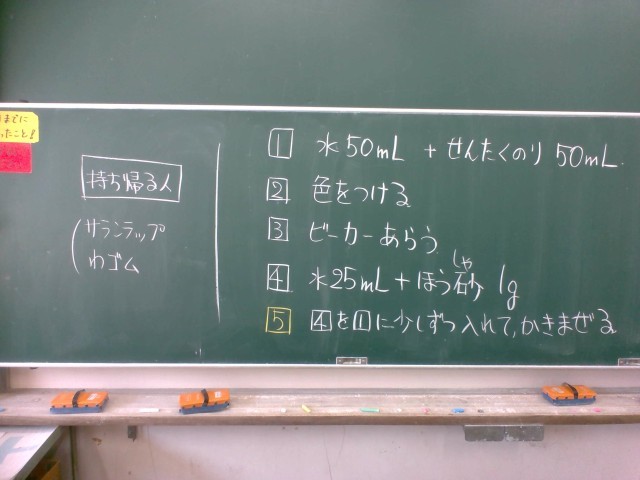 までに
ったこと!
持ち帰る人
サランラップ
わゴム
1 水50mL + せんたくのり 50mL.
2 色をつける
3 ビーカーあらう
しゃ
4 水25mL + ほう砂 1g
5 4を1に少しずつ入れて、かきまぜる